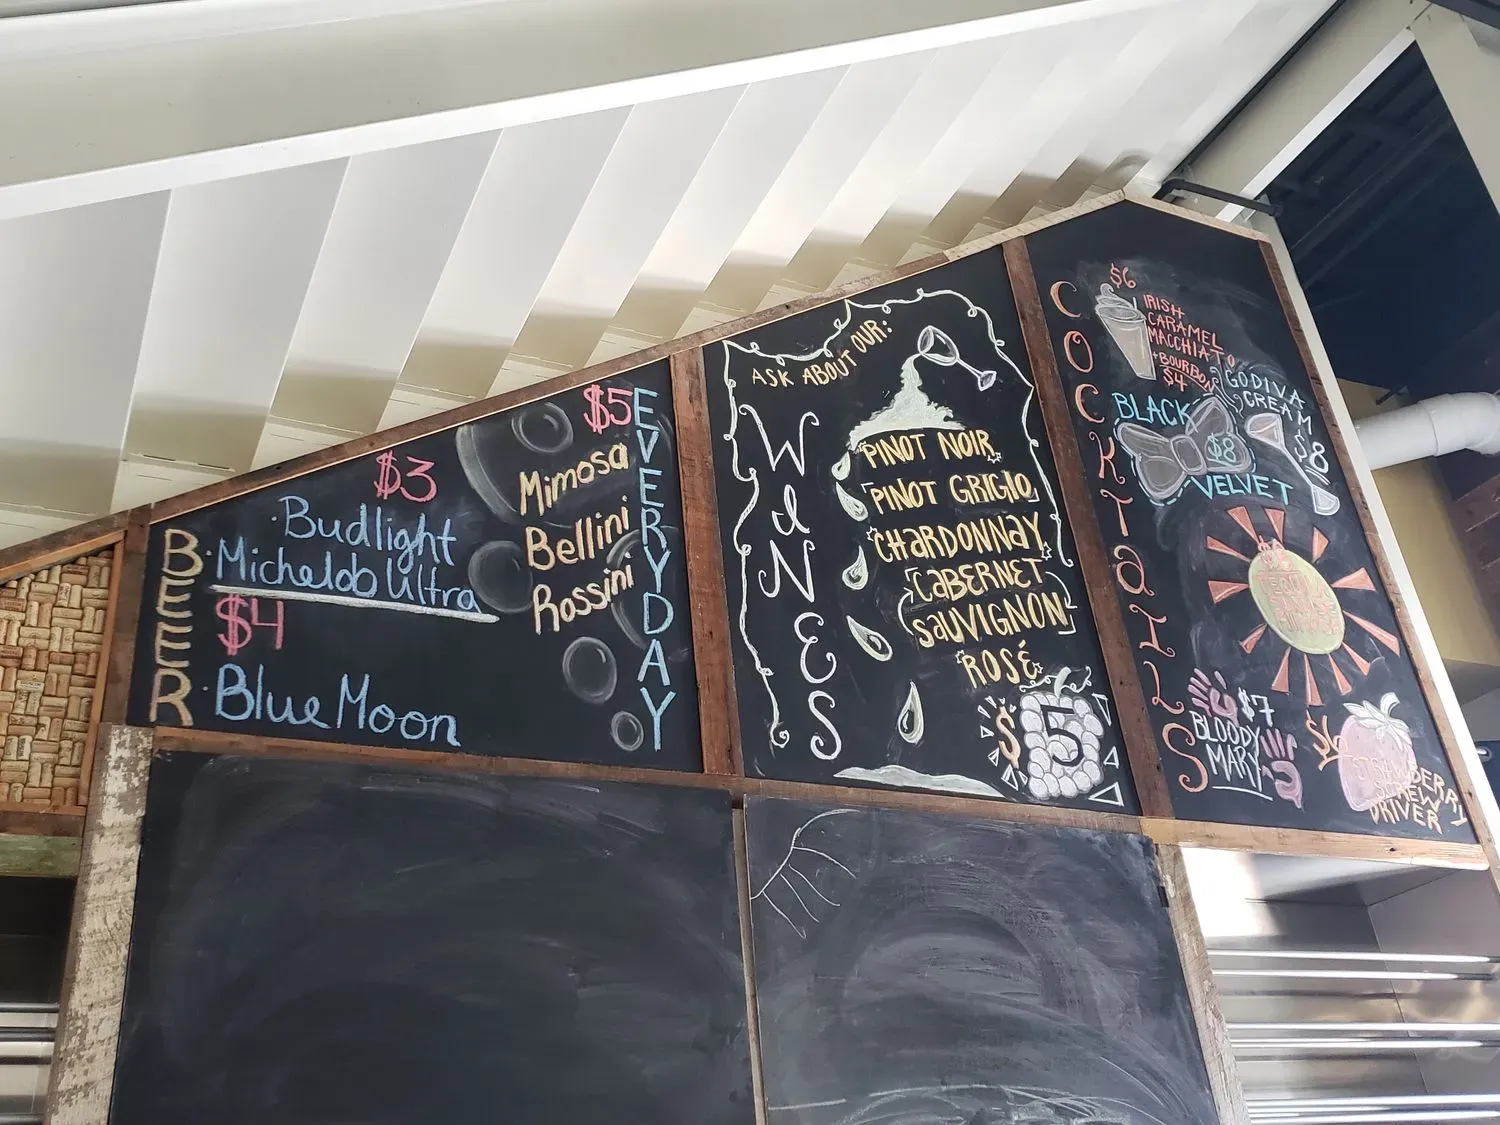 BEER
$3
·Budlight
·Michelob Ultra
$4
·Blue Moon
$5
EVERYDAY
Mimosa
Bellini
Rossini
ASK ABOUT OUR:
WINES
PINOT NOIR
PINOT GRIGIO
CHARDONNAY
CABERNET
SAUVIGNON
ROSÉ
$5
COCKTAILS
$6
IRISH
CARAMEL
MACCHIATO
+BOURBON
$4
GODIVA
CREAM
$8
BLACK
$8
VELVET
TEQUILA
SUNRISE
$7
BLOODY
MARY
$6
STRAWBERRY
SCREW
DRIVER